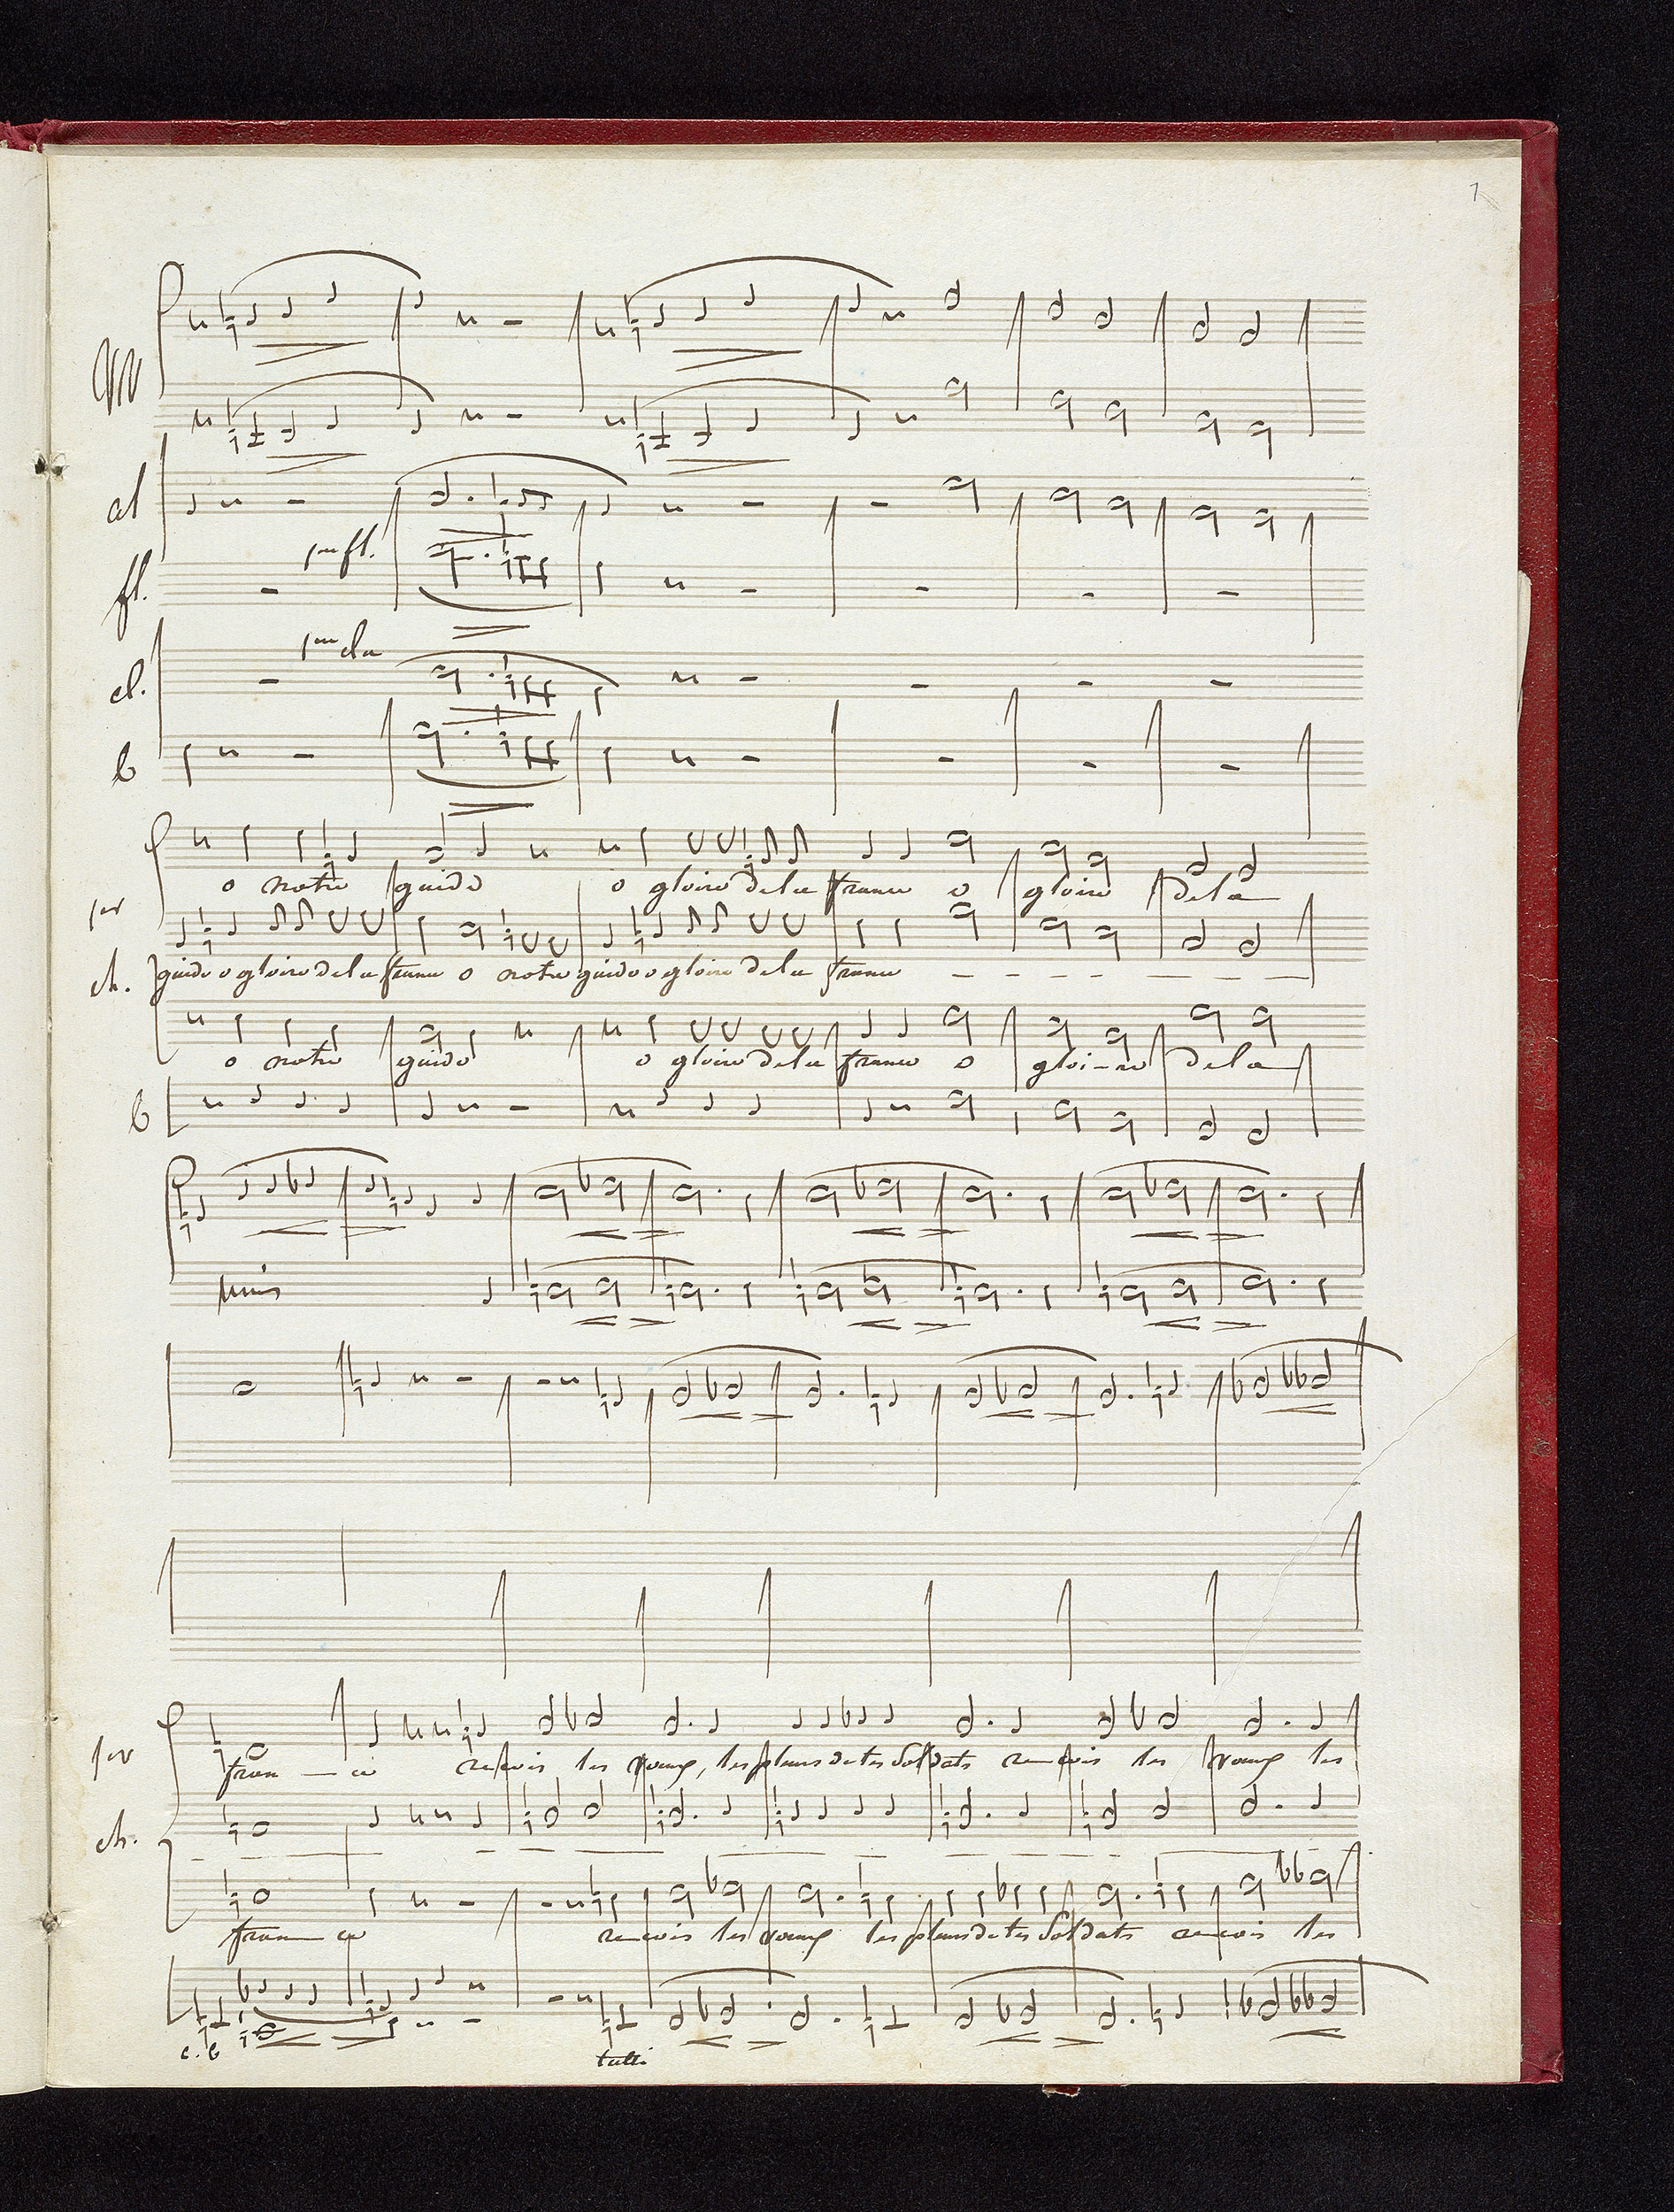 1
VV
al
1re fl.
fl.
1re cla
cl.
b
o notre guide o gloire de la france o gloire de la
per
guide o gloire de la france o notre guide o gloire de la france
ch.
o notre guide o gloire de la france o gloi-re de la
b
unis
fran - ce recois les voeux, les pleurs de tes soldats recois les voeux les
per
ch.
fran ce recois les voeux les pleurs de tes soldats recois les
c. b
tutti